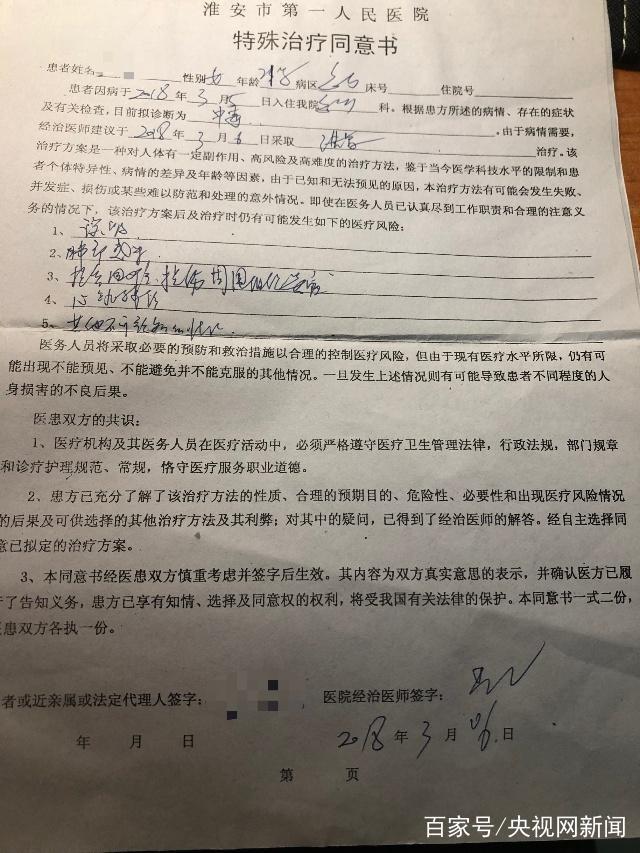 淮安市第一人民医院
特殊治疗同意书
患者姓名 性别 女 年龄 病区 床号 住院号
患者因病于 2018 年 3 月 5 日入住我院 科。根据患方所述的病情、存在的症状
及有关检查，目前拟诊断为 中毒 。由于病情需要，
经治医师建议于 2018 年 3 月 6 日采取 洗胃 治疗。该
治疗方案是一种对人体有一定副作用、高风险及高难度的治疗方法，鉴于当今医学科技水平的限制和患
者个体特异性、病情的差异及年龄等因素，由于已知和无法预见的原因，本治疗方法有可能会发生失败、
并发症、损伤或某些难以防范和处理的意外情况。即使在医务人员已认真尽到工作职责和合理的注意义
务的情况下，该治疗方案后及治疗时仍有可能发生如下的医疗风险：
1、
2、
3、
4、
5、
医务人员将采取必要的预防和救治措施以合理的控制医疗风险，但由于现有医疗水平所限，仍有可
能出现不能预见、不能避免并不能克服的其他情况。一旦发生上述情况则有可能导致患者不同程度的人
身损害的不良后果。
医患双方的共识：
1、医疗机构及其医务人员在医疗活动中，必须严格遵守医疗卫生管理法律，行政法规，部门规章
和诊疗护理规范、常规，恪守医疗服务职业道德。
2、患方已充分了解了该治疗方法的性质、合理的预期目的、危险性、必要性和出现医疗风险情况
的后果及可供选择的其他治疗方法及其利弊；对其中的疑问，已得到了经治医师的解答。经自主选择同
意已拟定的治疗方案。
3、本同意书经医患双方慎重考虑并签字后生效。其内容为双方真实意思的表示，并确认医方已履
行了告知义务，患方已享有知情、选择及同意权的权利，将受我国有关法律的保护。本同意书一式二份，
医患双方各执一份。
者或近亲属或法定代理人签字： 医院经治医师签字：
年 月 日 2018 年 3 月 日
第 页
百家号/央视网新闻